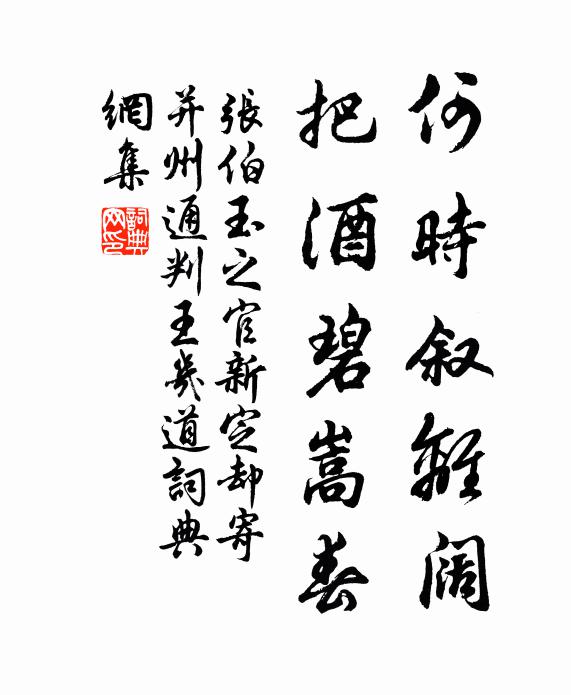 何時叙離闊
把酒碧嵩春
張伯玉之官新定却寄
并州通判王幾道詞典
網集
詞典网印